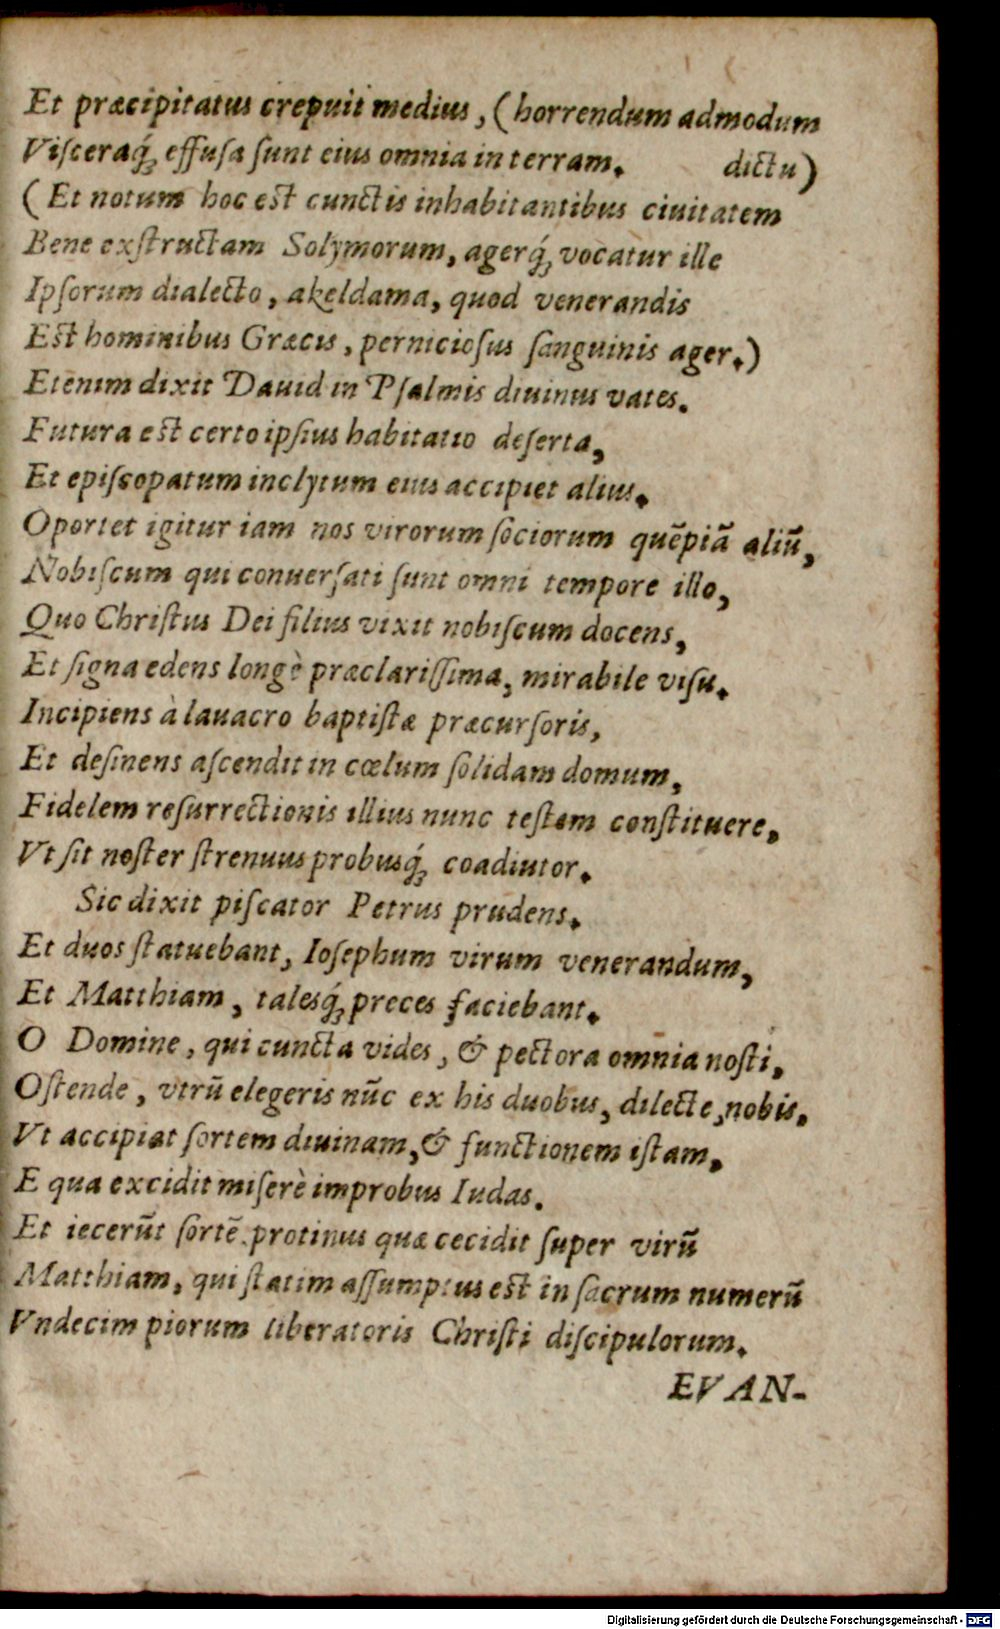 Et præcipitatus crepuit medius, (horrendum admodum
Viſceraq́ꝫ effuſa ſunt eius omnia in terram. dictu)
(Et notum hoc eſt cunctis inhabitantibus ciuitatem
Bene exſtructam Solymorum, agerq́ꝫ vocatur ille
Ipſorum dialecto, akeldama, quod venerandis
Eſt hominibus Græcis, pernicioſus ſanguinis ager.)
Etenim dixit Dauid in Pſalmis diuinus vates.
Futura eſt certo ipſius habitatio deſerta,
Et epiſcopatum inclytum eius accipiet alius.
Oportet igitur iam nos virorum ſociorum quēpiā aliū,
Nobiſcum qui conuerſati ſunt omni tempore illo,
Quo Chriſtus Dei filius vixit nobiſcum docens,
Et ſigna edens longè præclariſſima, mirabile viſu.
Incipiens à lauacro baptiſtæ præcurſoris,
Et deſinens aſcendit in cœlum ſolidam domum,
Fidelem reſurrectionis illius nunc teſtem conſtituere,
Vt ſit noſter ſtrenuus probusq́ꝫ coadiutor.
Sic dixit piſcator Petrus prudens.
Et duos ſtatuebant, Ioſephum virum venerandum,
Et Matthiam, talesq́ꝫ preces faciebant.
O Domine, qui cuncta vides, & pectora omnia noſti,
Oſtende, vtrū elegeris nūc ex his duobus, dilecte, nobis.
Vt accipiat ſortem diuinam, & functionem iſtam,
E qua excidit miſerè improbus Iudas.
Et iecerūt ſortē protinus quæ cecidit ſuper virū
Matthiam, qui ſtatim aſſumptus eſt in ſacrum numerū
Vndecim piorum liberatoris Chriſti diſcipulorum.
EVAN-
Digitalisierung gefördert durch die Deutsche Forschungsgemeinschaft - DFG